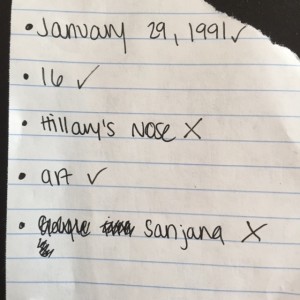 • January 29, 1991 ✓
• 16 ✓
• Hillary's Nose X
• art ✓
• Sanjana X